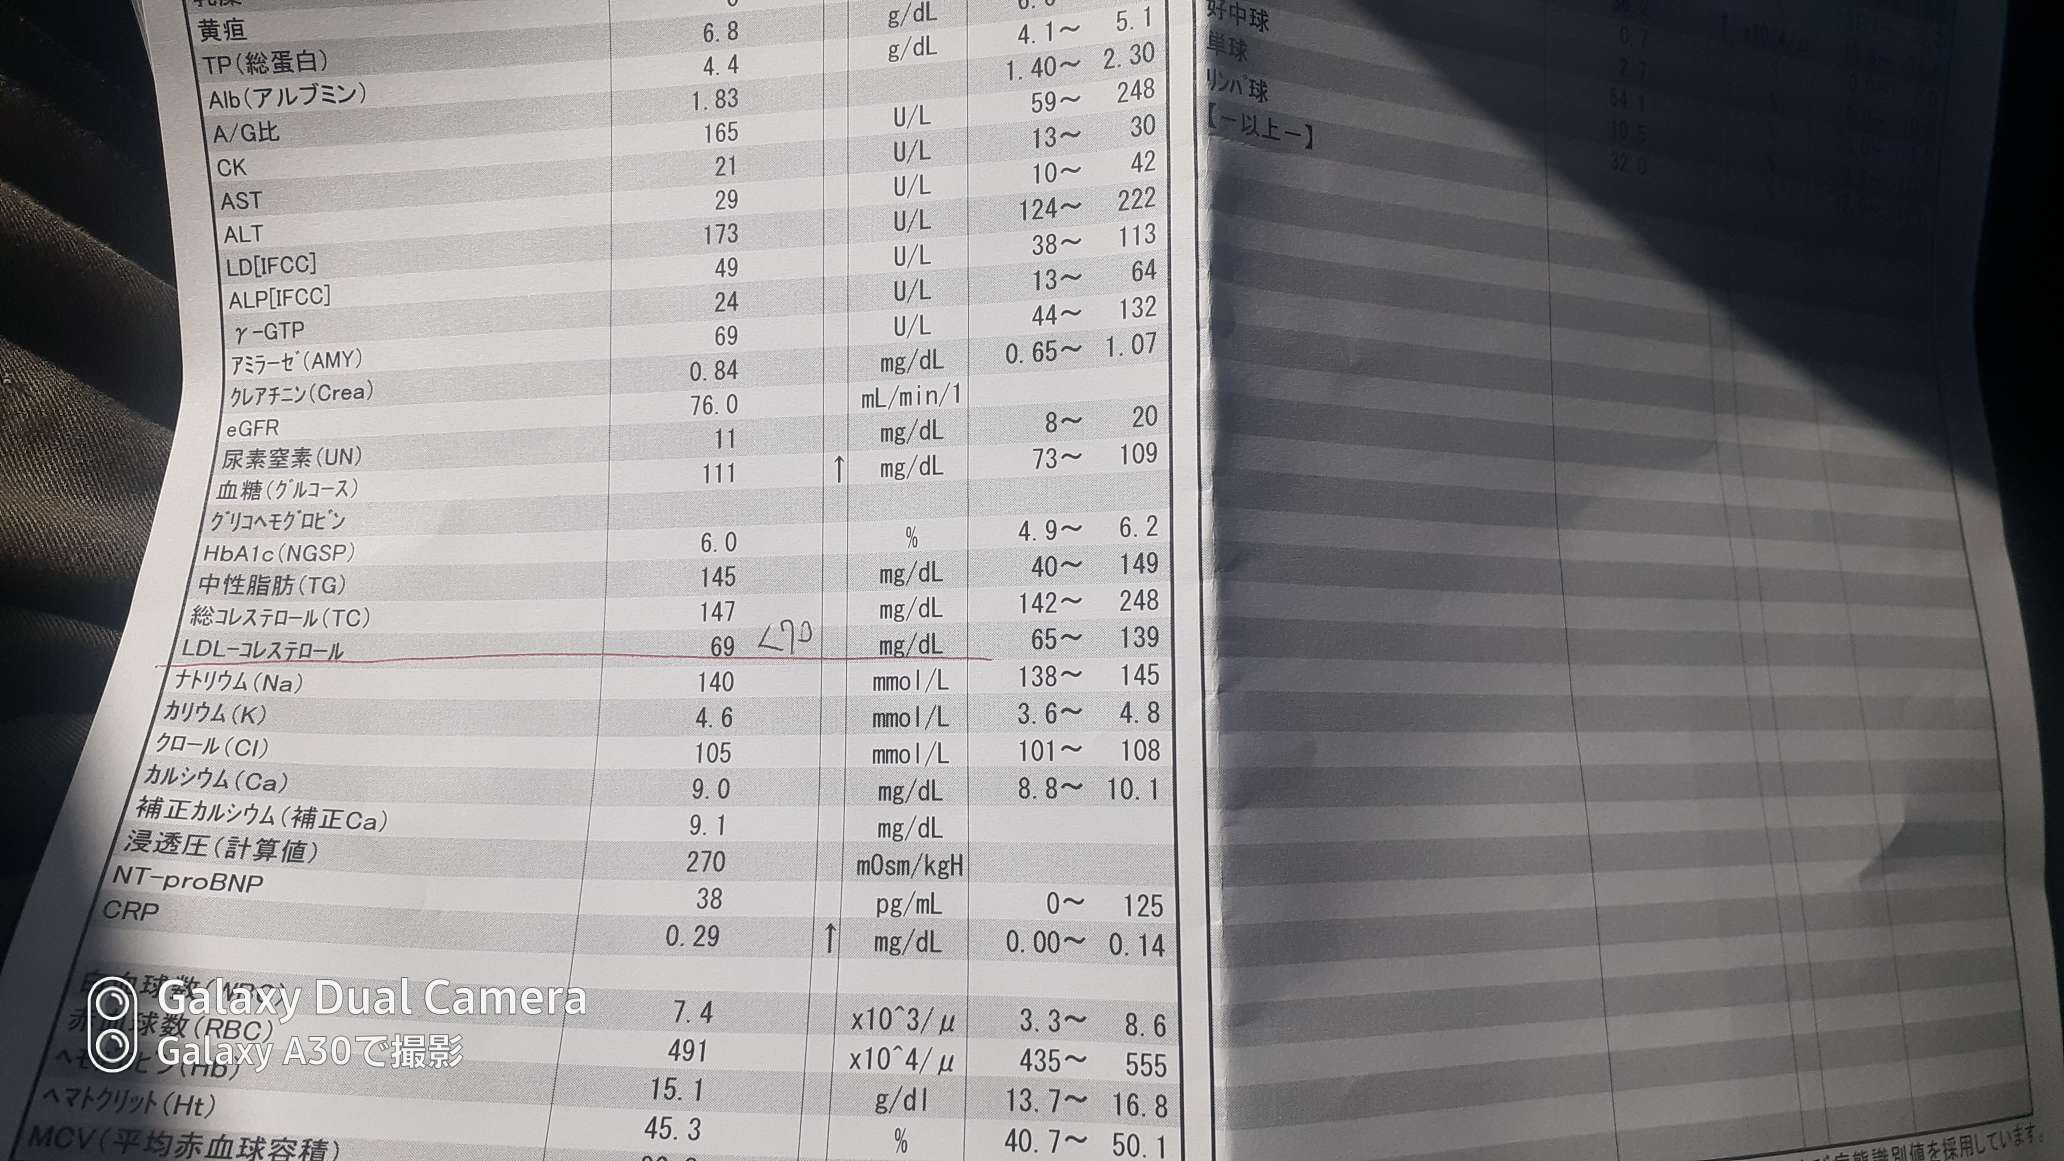 黄疸
TP(総蛋白) 6.8 g/dL
Alb(アルブミン) 4.4 g/dL 4.1～ 5.1
A/G比 1.83 1.40～ 2.30
CK 165 U/L 59～ 248
AST 21 U/L 13～ 30
ALT 29 U/L 10～ 42
LD[IFCC] 173 U/L 124～ 222
ALP[IFCC] 49 U/L 38～ 113
γ-GTP 24 U/L 13～ 64
ｱﾐﾗｰｾﾞ(AMY) 69 U/L 44～ 132
ｸﾚｱﾁﾆﾝ(Crea) 0.84 mg/dL 0.65～ 1.07
eGFR 76.0 mL/min/1
尿素窒素(UN) 11 mg/dL 8～ 20
血糖(ｸﾞﾙｺｰｽ) 111 ↑ mg/dL 73～ 109
ｸﾞﾘｺﾍﾓｸﾞﾛﾋﾞﾝ
HbA1c(NGSP) 6.0 % 4.9～ 6.2
中性脂肪(TG) 145 mg/dL 40～ 149
総ｺﾚｽﾃﾛｰﾙ(TC) 147 mg/dL 142～ 248
LDL-ｺﾚｽﾃﾛｰﾙ 69 <70 mg/dL 65～ 139
ﾅﾄﾘｳﾑ(Na) 140 mmol/L 138～ 145
ｶﾘｳﾑ(K) 4.6 mmol/L 3.6～ 4.8
ｸﾛｰﾙ(Cl) 105 mmol/L 101～ 108
ｶﾙｼｳﾑ(Ca) 9.0 mg/dL 8.8～ 10.1
補正ｶﾙｼｳﾑ(補正Ca) 9.1 mg/dL
浸透圧(計算値) 270 mOsm/kgH
NT-proBNP 38 pg/mL 0～ 125
CRP 0.29 ↑ mg/dL 0.00～ 0.14
白血球数(WBC) 7.4 x10^3/μ 3.3～ 8.6
赤血球数(RBC) 491 x10^4/μ 435～ 555
ﾍﾓｸﾞﾛﾋﾞﾝ(Hb) 15.1 g/dl 13.7～ 16.8
ﾍﾏﾄｸﾘｯﾄ(Ht) 45.3 % 40.7～ 50.1
MCV(平均赤血球容積)
好中球 0.7
単球 2.7
ﾘﾝﾊﾟ球 54.1
【－以上－】 10.5
32.0
態識別値を採用しています。
Galaxy Dual Camera
Galaxy A30で撮影